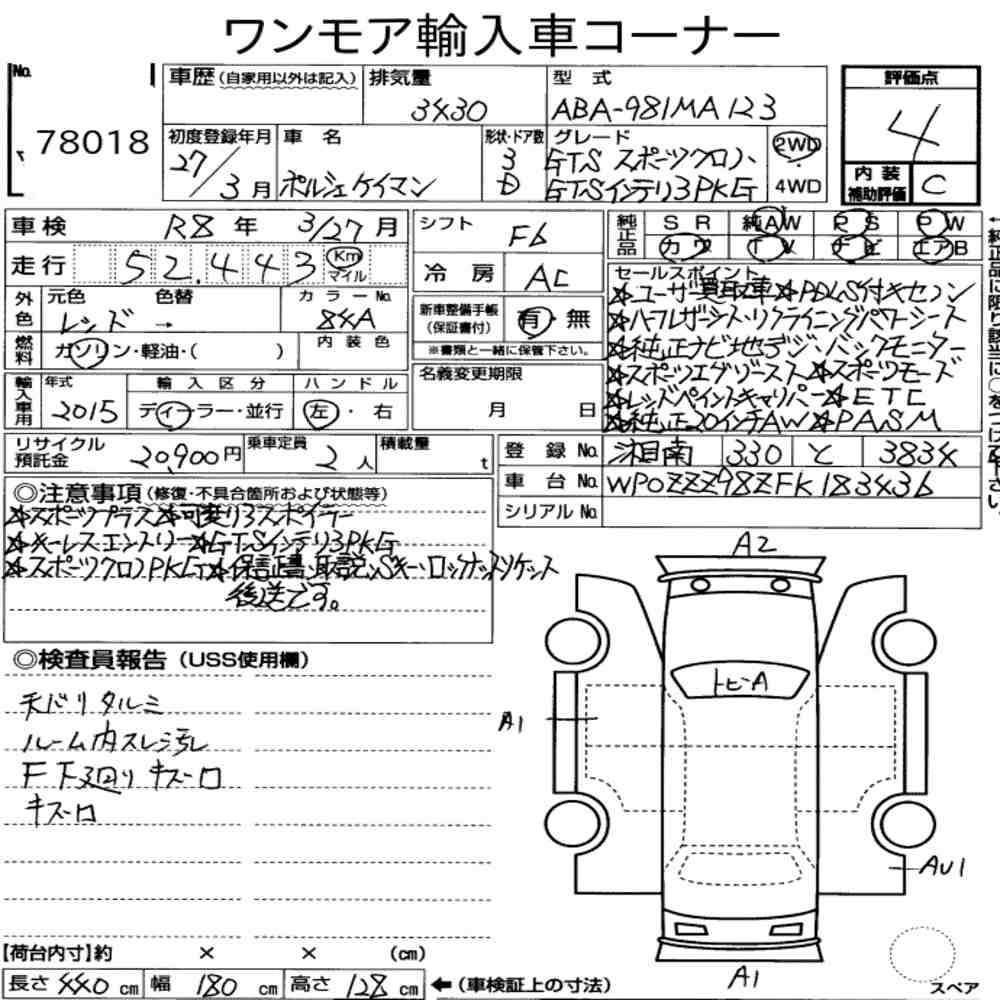 ワンモア輸入車コーナー
No. 78018
車歴(自家用以外は記入) 排気量 3430 型式 ABA-981MA123
初度登録年月 27/3月 車名 ポルシェケイマン 形状・ドア数 3 D グレード GTS スポーツクロノ、 GTSインテリアPKG 2WD・4WD
評価点 4
内装補助評価 C
車検 R8年 3/27月
走行 52,443 Km マイル
外色 元色 レッド → 色替 カラーNo. 84A
燃料 ガソリン・軽油・( ) 内装色
シフト F6
冷房 AC
新車整備手帳(保証書付) 有・無
※書類と一緒に保管下さい。
名義変更期限 月 日
純正品 SR 純AW PS PW
カワ TV ナビ エアB
←純正品に限り該当に○をつけて下さい。
セールスポイント
☆ユーザー買取車☆PDLS付キセノン
☆ハーフレザーシート・リクライニングパワーシート
☆純正ナビ地デジ・バックモニター
☆スポーツエグゾースト☆スポーツモード
☆レッドペイントキャリパー☆ETC
☆純正20インチAW☆PASM
輸入車用 年式 2015 輸入区分 ディーラー・並行 ハンドル 左・右
リサイクル預託金 20,900円 乗車定員 2人 積載量 t
登録No. 湘南 330 と 3834
車台No. WP0ZZZ98ZFK183436
シリアルNo.
◎注意事項(修復・不具合箇所および状態等)
☆スポーツプラス☆可変リアスポイラー
☆キーレスエントリー☆GTSインテリアPKG
☆スポーツクロノPKG☆保証書、取説、Sキー、ロックナットソケット
後送です。
◎検査員報告(USS使用欄)
天バリタルミ
ルーム内スレ汚レ
F下廻りキズ一口
キズ一口
A2
トビーA
A1
AU1
A1
スペア
【荷台内寸】約 × × (cm)
長さ 440 cm 幅 180 cm 高さ 128 cm ←(車検証上の寸法)